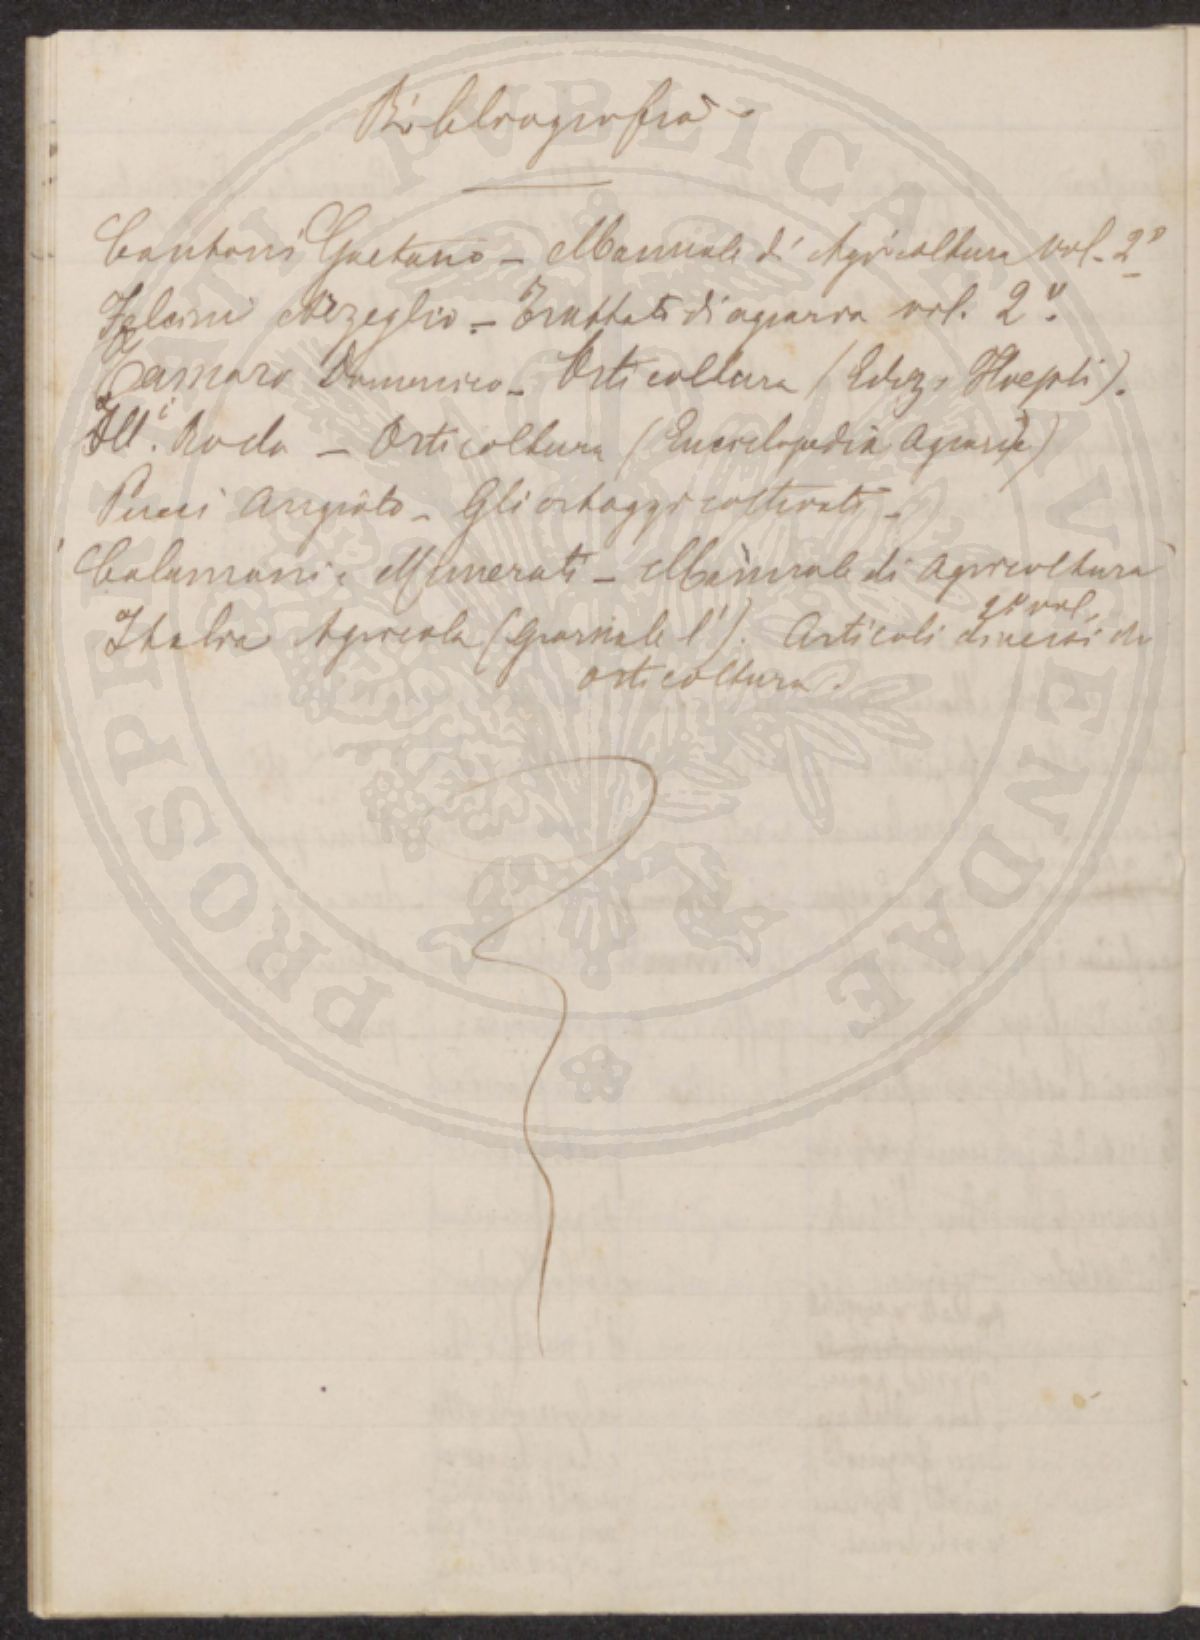 Bibliografia
Cantoni Gaetano - Manuale di Agricoltura vol. 2º
Falcini Azeglio - Trattato di agraria vol. 2º.
Tamaro Domenico - Orticoltura (Ediz. Hoepli).
Fll.i Roda - Orticoltura (Enciclopedia Agraria)
Pucci Angiolo - Gli ortaggi coltivati -
Calamani e Munerati - Manuale di Agricoltura
2º vol.
Italia Agricola (Giornale l'). Articoli diversi di
orticoltura.
PROSPERITATI PUBLICAE AVGENDAE